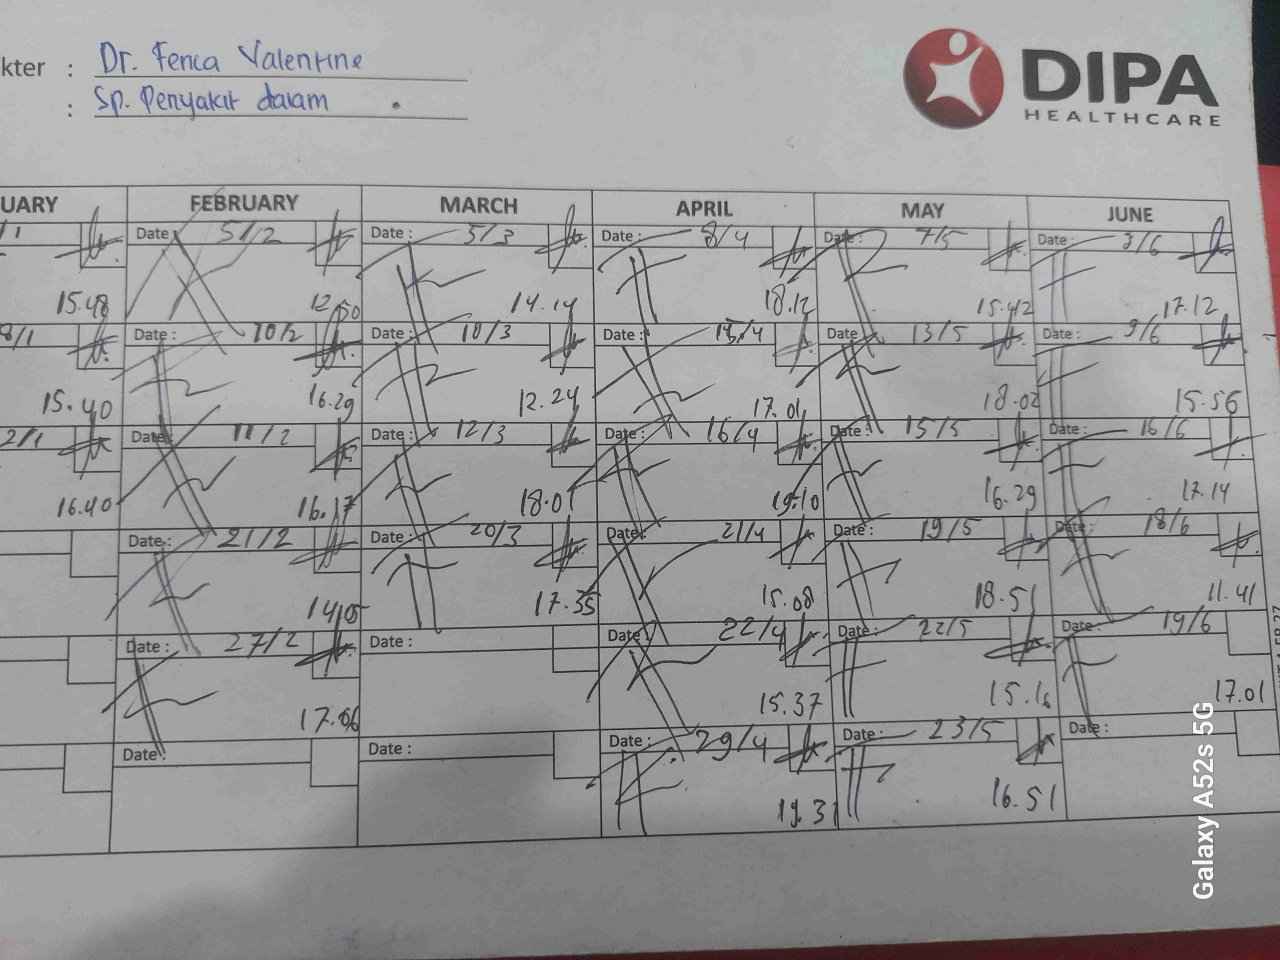 kter : Dr. Fenca Valentine
: Sp. Penyakit dalam
DIPA
HEALTHCARE
UARY FEBRUARY MARCH APRIL MAY JUNE
/1 Date 5/2 Date : 5/3 Date : 8/4 Date : 7/5 Date : 3/6
15.48 12.50 14.14 18.12 15.42 17.12
8/1 Date : 10/2 Date : 10/3 Date : 15/4 Date : 13/5 Date : 9/6
15.40 16.29 12.24 17.01 18.02 15.56
2/1 Date 11/2 Date : 12/3 Date : 16/4 Date : 15/5 Date : 16/6
16.40 16.17 18.01 19.10 16.29 17.14
Date : 21/2 Date : 20/3 Date : 21/4 Date : 19/5 Date : 18/6
14.05 17.35 15.08 18.51 11.41
Date : 27/2 Date : Date : 22/4 Date : 22/5 Date : 19/6
17.06 15.37 15.16 17.01
Date : Date : Date : 29/4 Date : 23/5 Date :
19.31 16.51
Galaxy A52s 5G